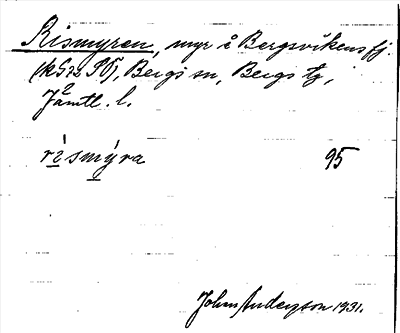 Rismyren, myr å Bergsvikens fj.
(k522 SO), Bergs sn, Bergs tg,
Jämtl. l.
2
rismýra 95
John Anderzson 1931.